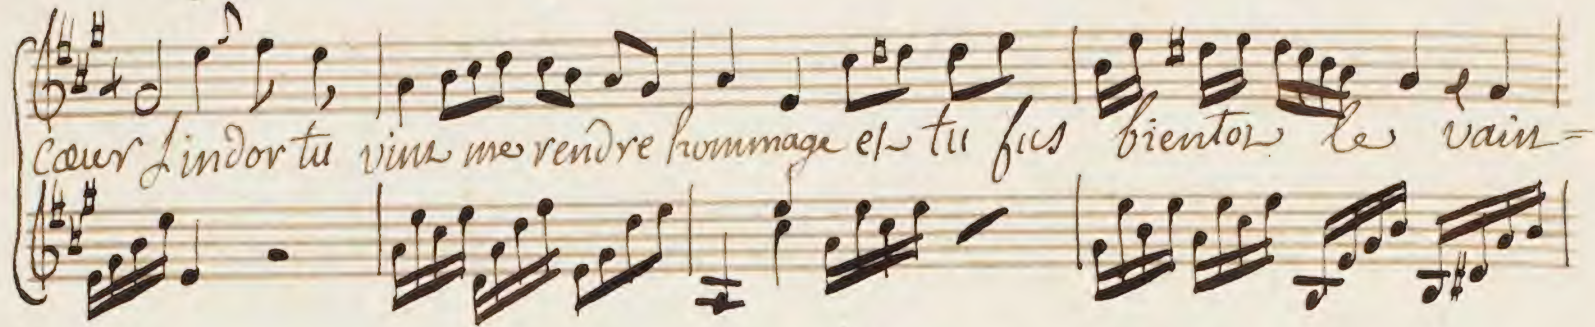 cœur Lindor tu vint me rendre hommage et tu fus bientot le vain=